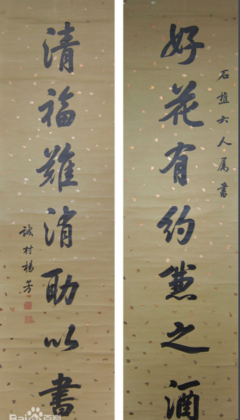 石大人屬書
好花有約兼之酒
清福難消助以書
誠村楊芳
Bai百科